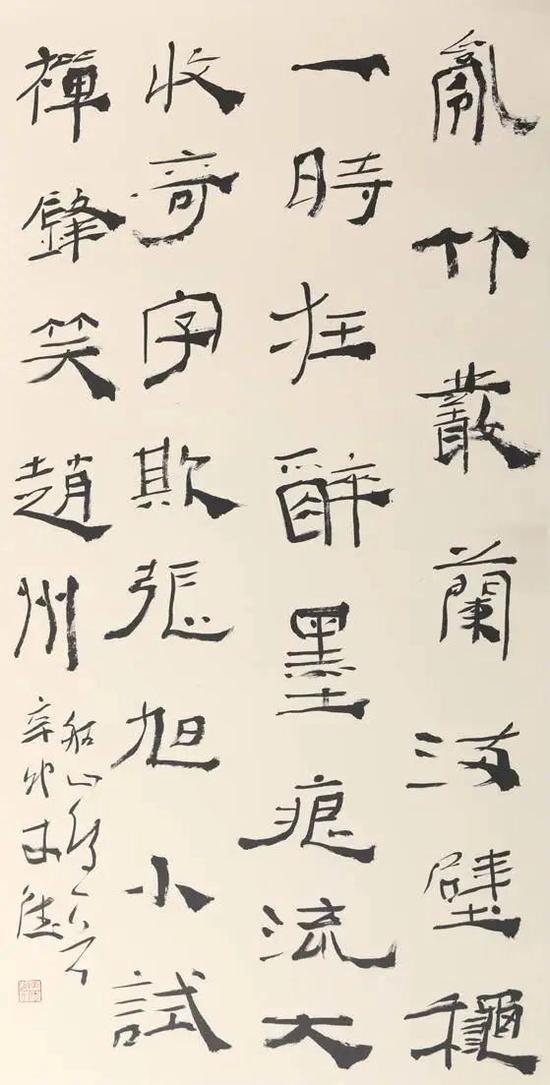 亂竹叢蘭滿壁穐
一時狂醉墨痕流大
收奇字欺張旭小試
禪鋒笑趙州
船山詩一首
辛卯